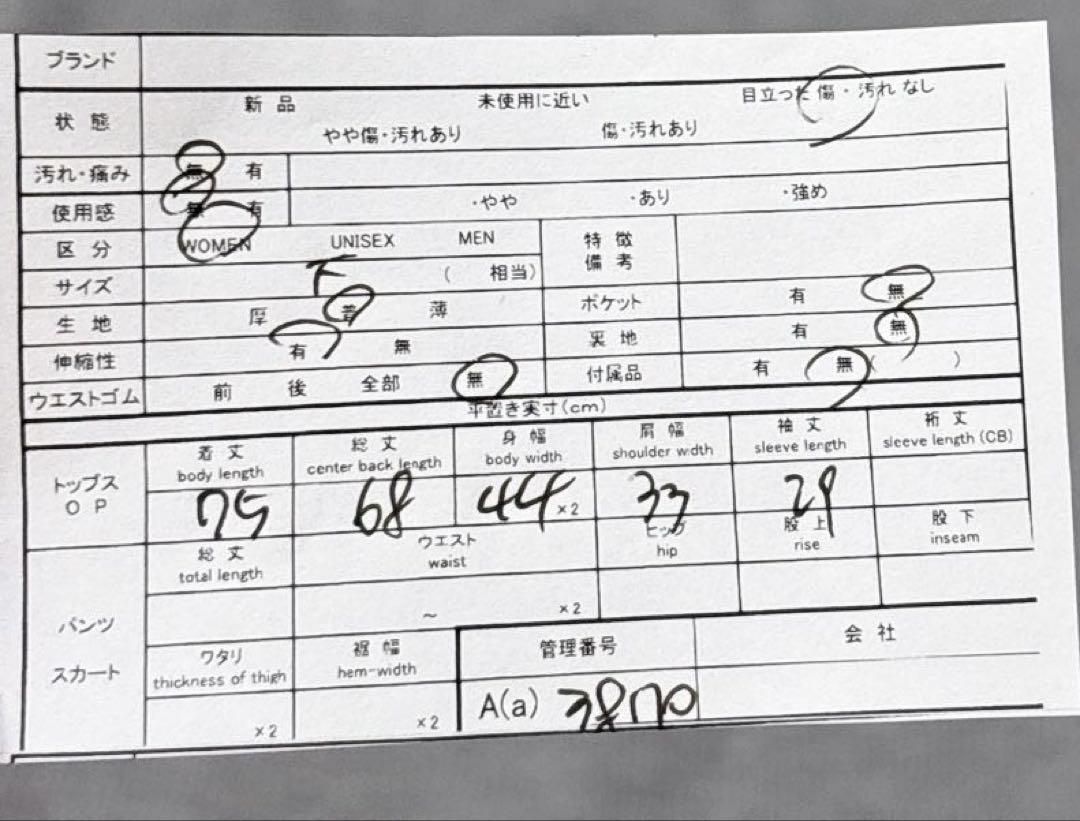 ブランド
状態 新品 未使用に近い 目立った傷・汚れなし
やや傷・汚れあり 傷・汚れあり
汚れ・痛み 無 有
使用感 無 有 ・やや ・あり ・強め
区分 WOMEN UNISEX MEN 特徴
備考
サイズ ( 相当)
生地 厚 普 薄 ポケット 有 無
伸縮性 有 無 裏地 有 無
ウエストゴム 前 後 全部 無 付属品 有 無 ( )
平置き実寸(cm)
トップス
OP
着丈 総丈 身幅 肩幅 袖丈 裄丈
body length center back length body width shoulder width sleeve length sleeve length (CB)
75 68 44 ×2 33 29
パンツ
スカート
総丈 ウエスト ヒップ 股上 股下
total length waist hip rise inseam
~ ×2
ワタリ 裾幅 管理番号 会社
thickness of thigh hem-width
×2 ×2 A(a) 3870